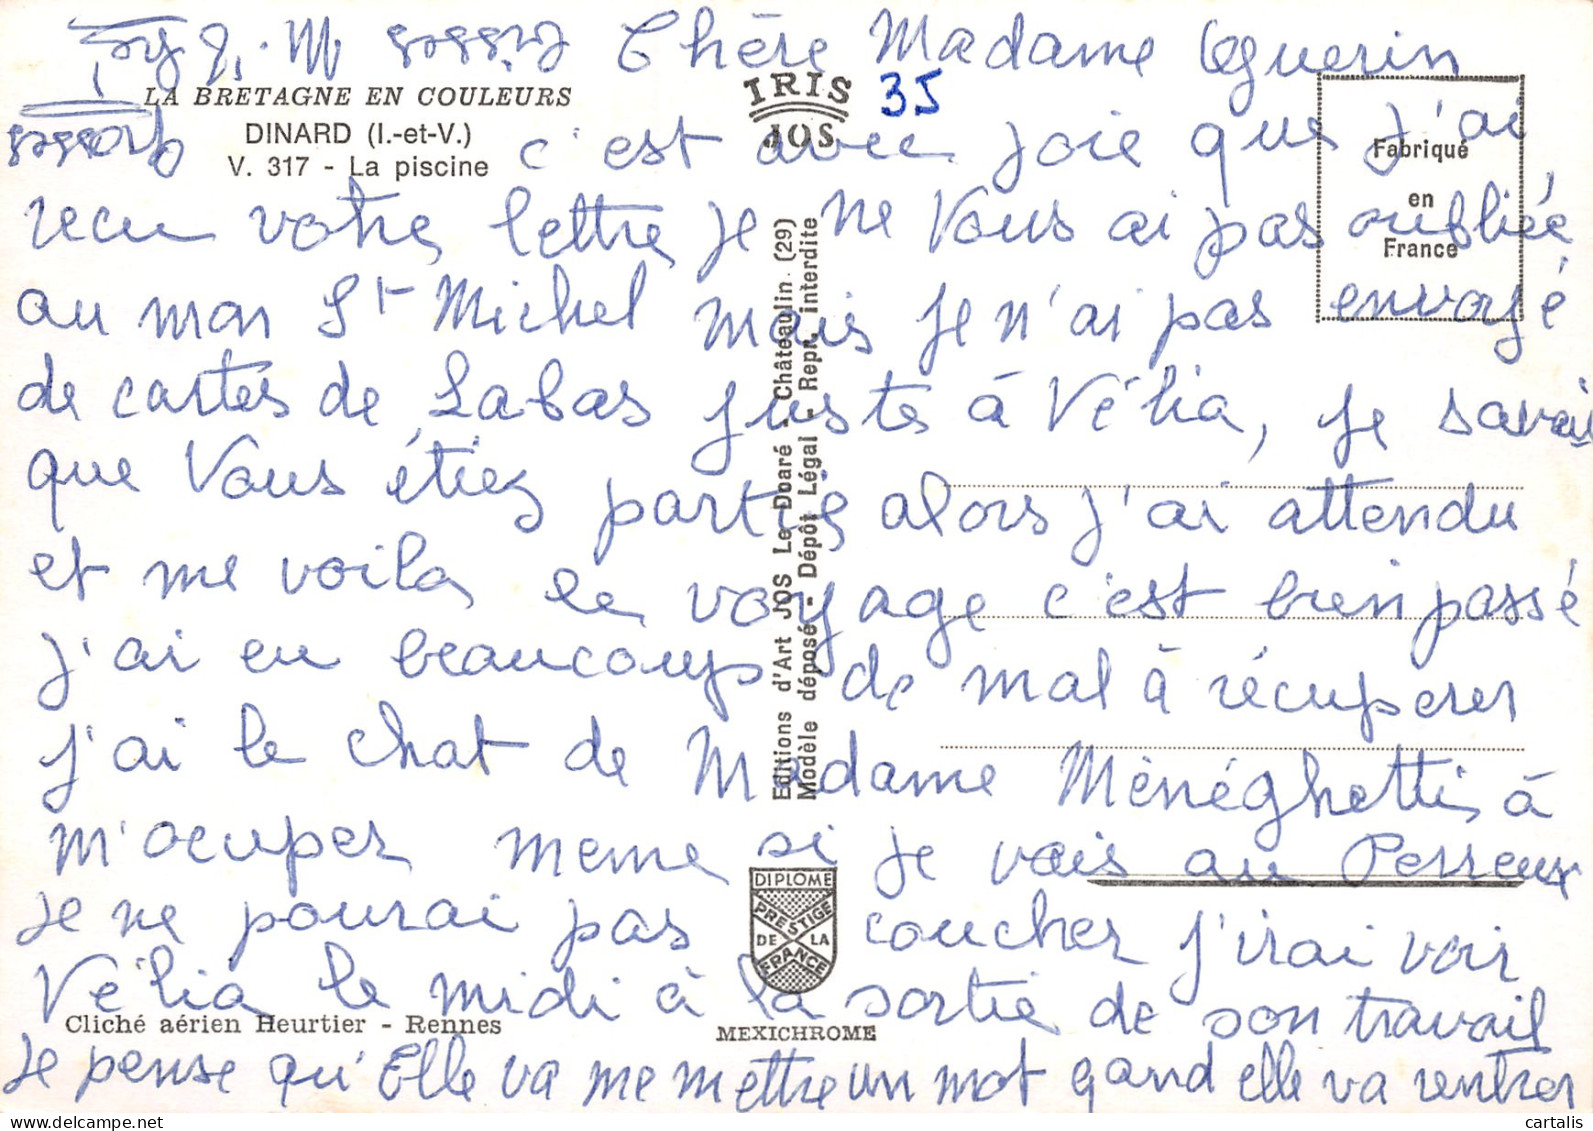 Chère Madame Guerin
LA BRETAGNE EN COULEURS
DINARD (I.-et-V.)
V. 317 - La piscine
IRIS
JOS
35
Fabriqué
en
France
c'est avec joie que j'ai
recu votre lettre je ne Vous ai pas oubliée
au mon St Michel mais je n'ai pas envoyé
de cartes de Labas juste à Vélia, je savais
que Vous étiez partis alors j'ai attendu
et me voila le voyage c'est bien passé
j'ai eu beaucoup de mal à récuperer
j'ai le chat de Madame Ménéghetti à
m'ocuper meme si je vais au Perreux
je ne pourai pas coucher j'irai voir
Vélia le midi à la sortie de son travail
je pense qu'Elle va me mettre un mot quand elle va rentrer
Grosses
Bises M.
Editions d'Art JOS Le Doaré - Châteaulin (29)
Modèle déposé - Dépôt Légal - Repr. interdite
DIPLOME
PRESTIGE
DE LA
FRANCE
Cliché aérien Heurtier - Rennes
MEXICHROME
cartalis